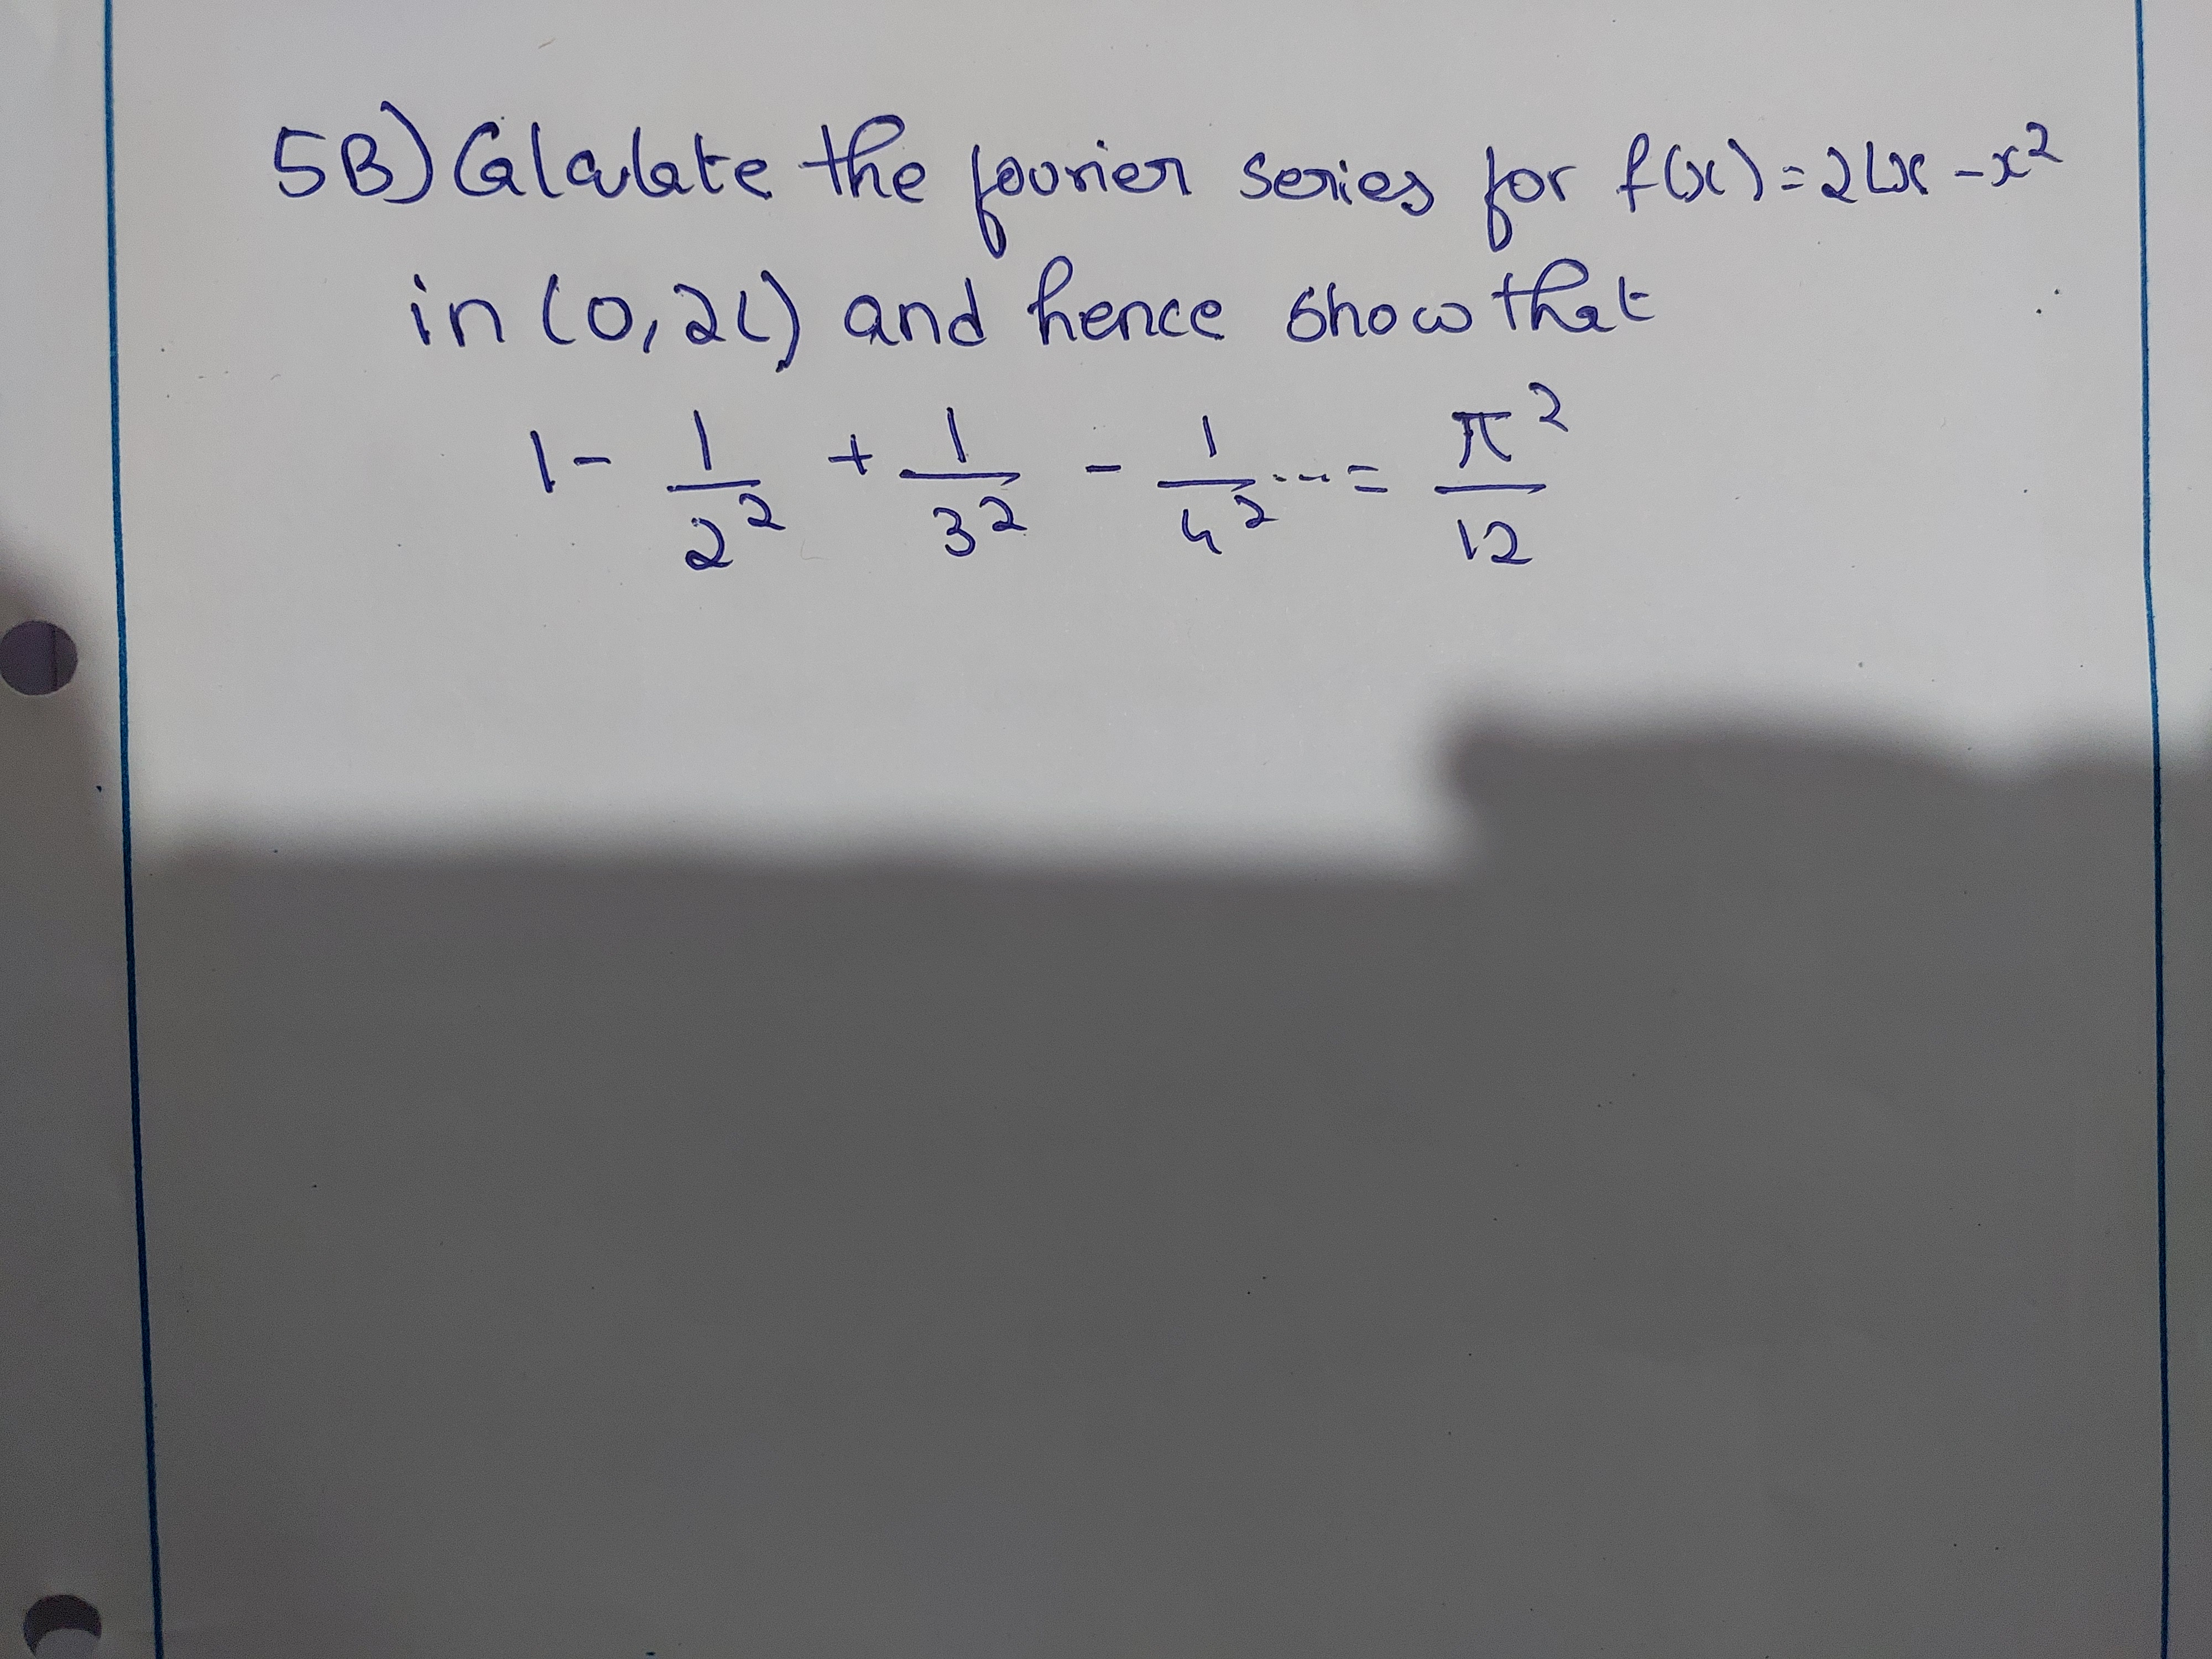 5B) Calculate the fourier series for f(x) = 2lx - x²
in (0, 2l) and hence show that
1 - 1/2² + 1/3² - 1/4² ... = π²/12